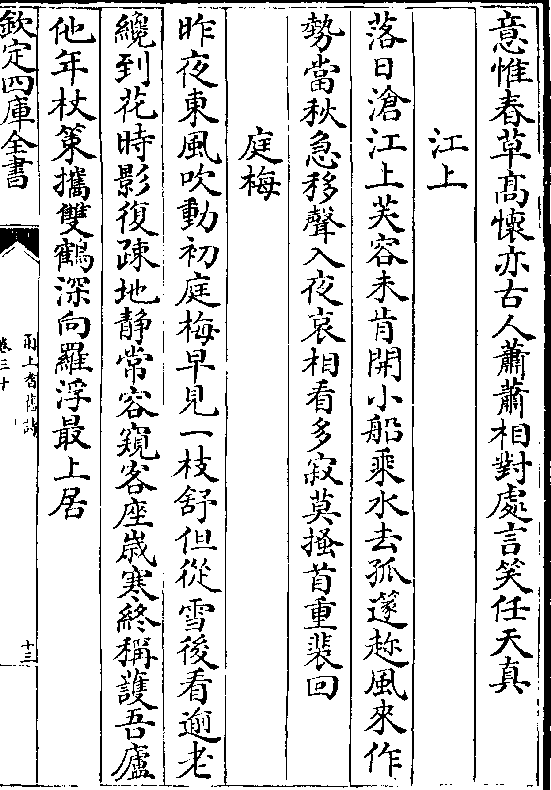 意惟春草髙懷亦古人蕭蕭相對處言笑任天真
江上
落日滄江上芙容未肯開小船乘水去孤邃趂風來作
勢當秋急移聲入夜哀相看多寂莫搔首重裴回
庭梅
昨夜東風吹動初庭梅早見一枝舒但從雪後看逾老
纔到花時影復疎地静常容窺客座嵗寒終稱䕶吾廬
他年杖策攜雙鶴深向羅浮最上居
欽定四庫全書
甬上耆舊詩
卷三十
十三